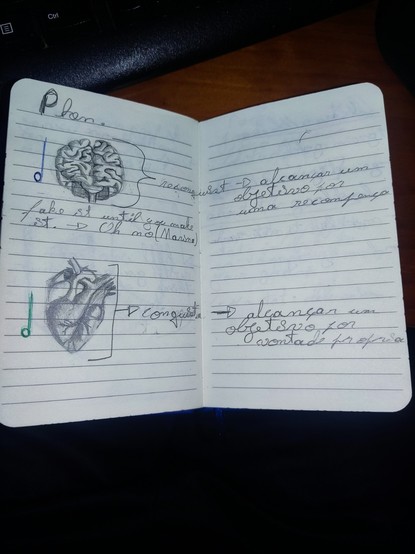 Ctrl
Plan.
reconquist → alcançar um
objetivo por
uma recompença
fake it until you make
it. → Oh no (Marina)
conquista → alcançar um
objetivo por
vontade propria